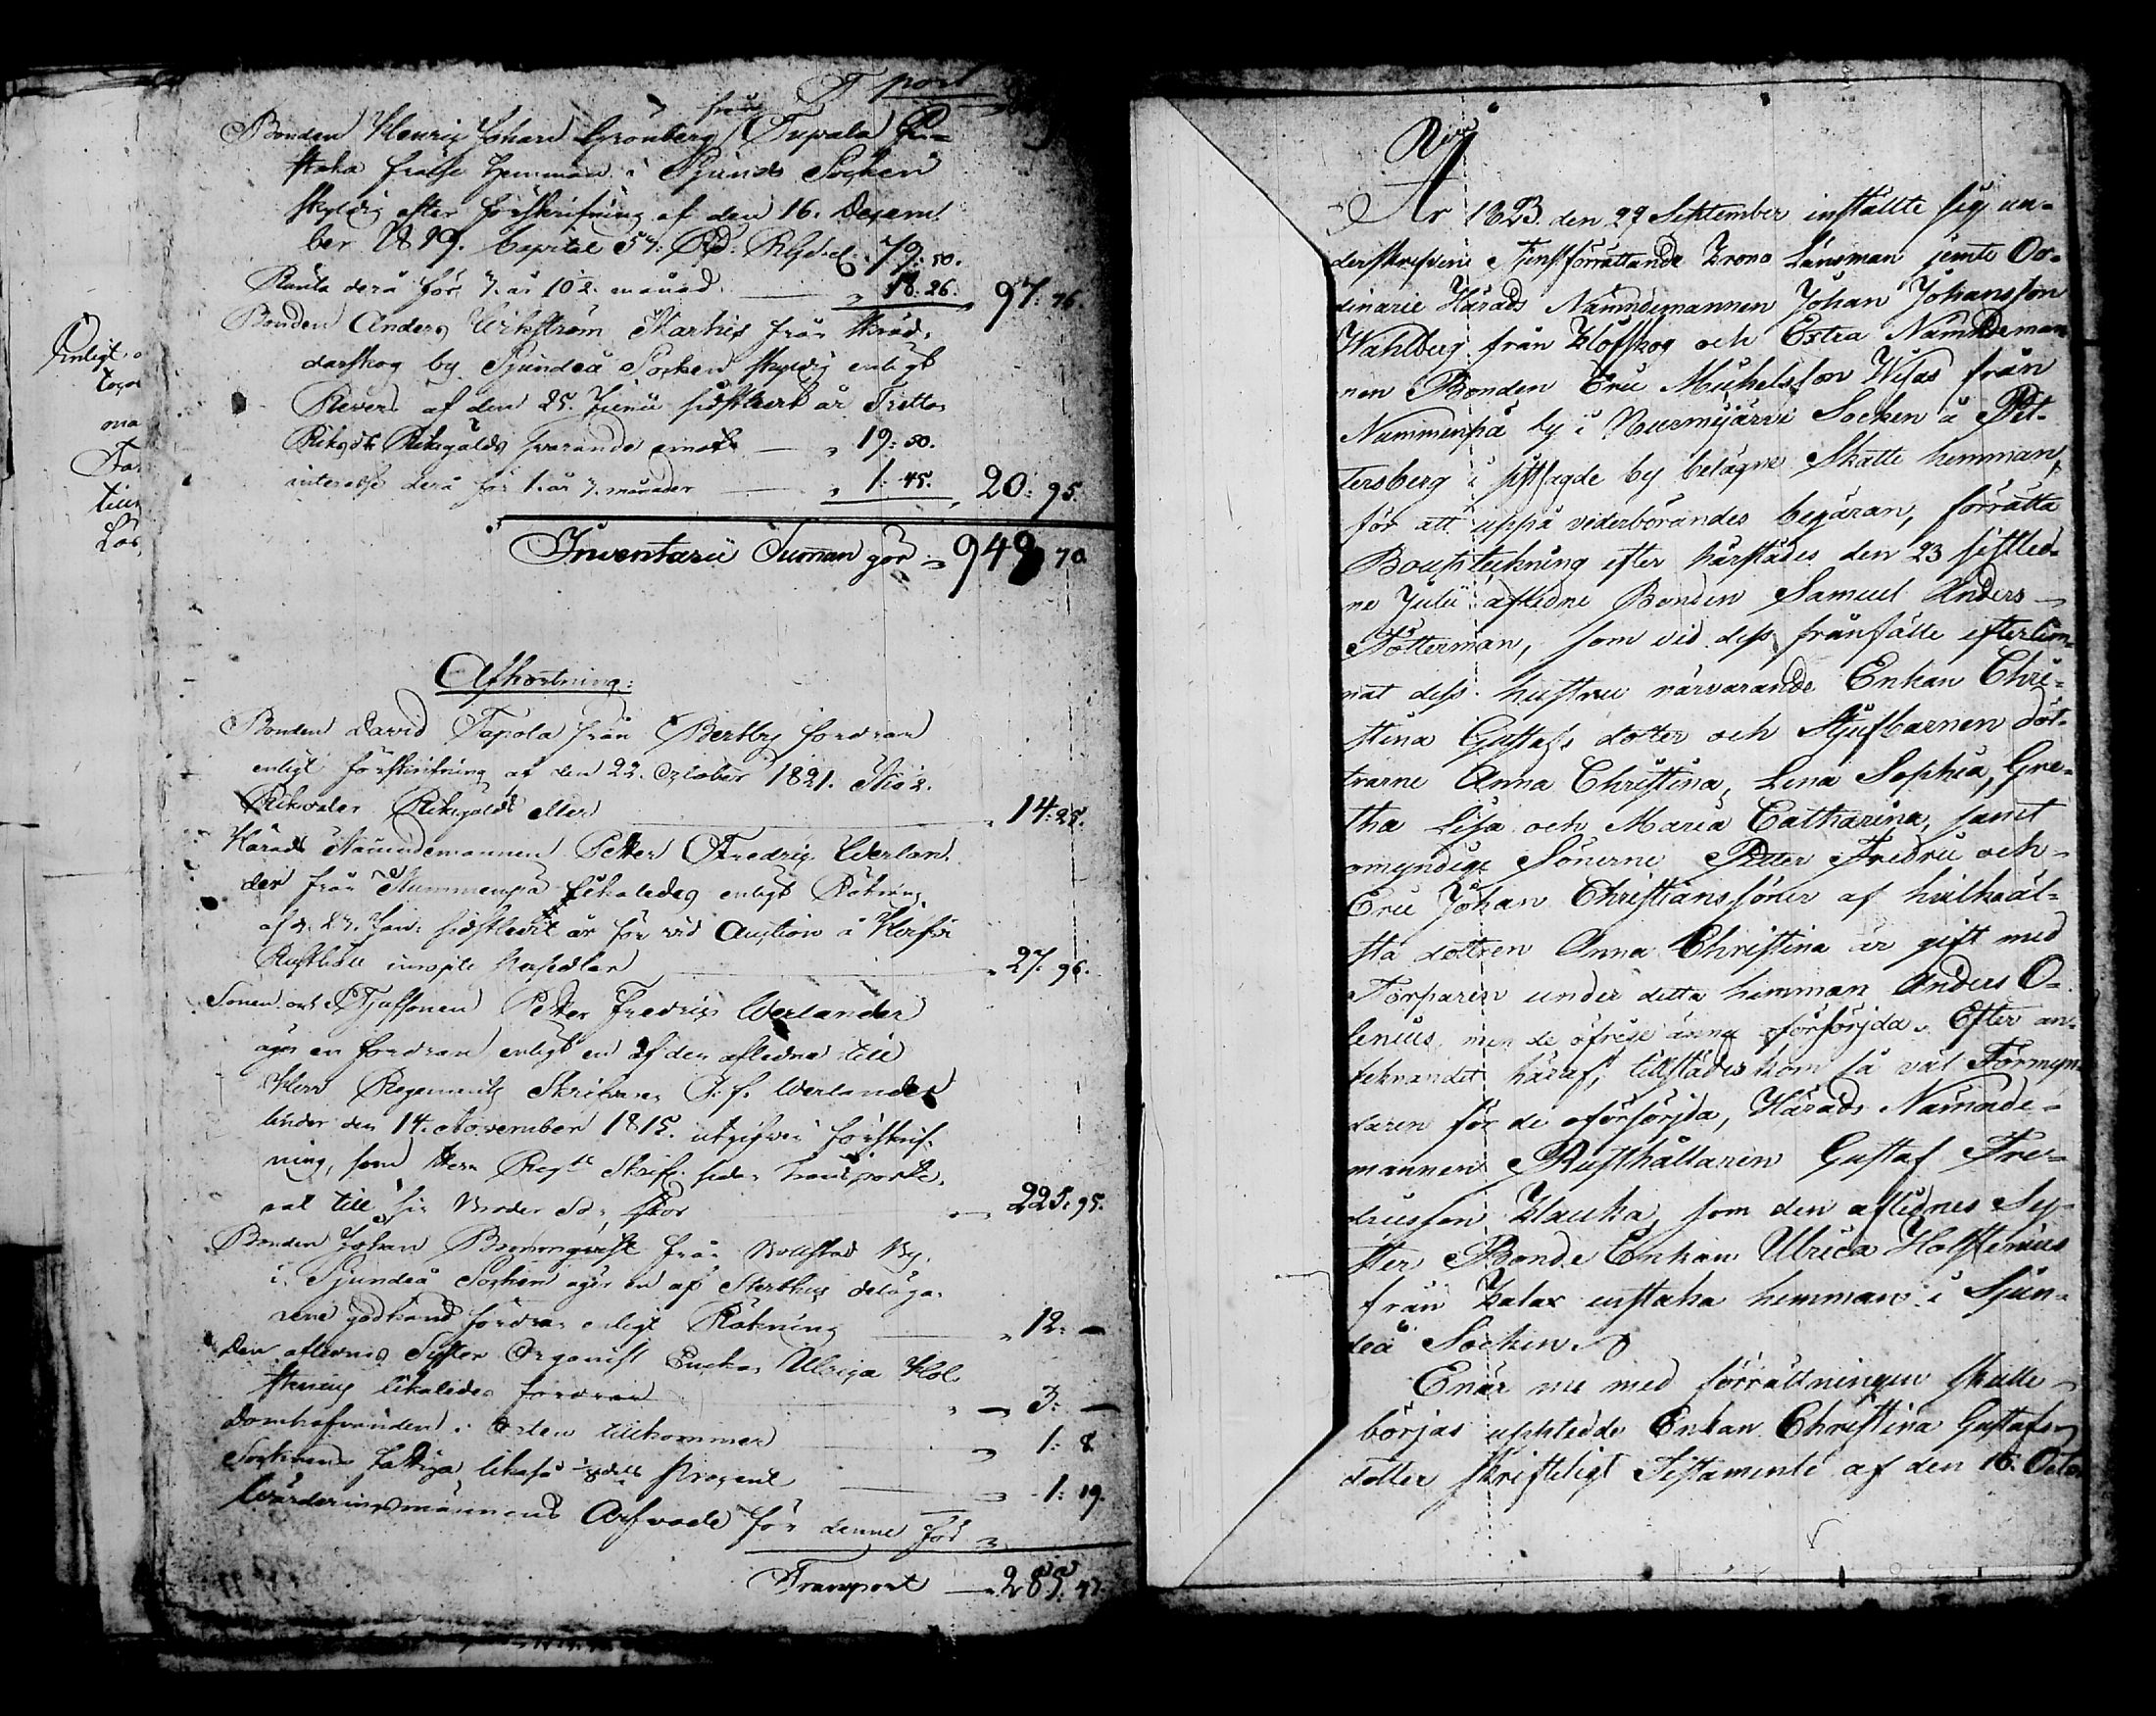 Enligt
Transport
från
Bonden Henric Johan Grönberg Tupala En-
staka frälse hemman i Sjundeå Socken
skyldig efter förskrifning af den 16. Decem-
ber 1819. Capital 57: Rd. Rgds: 79: 50.
Ränta derå för 7. år 10½. månad 18: 26. 97: 76.
Bonden Anders Wikström Markus från Skräd-
darskog by Sjundeå Socken skyldig enligt
Revers af den 25. Junii sidstledit år Tretton
Riksdr Riksgälds svarande emot 19: 50.
interesse derå för 1. år 7. månader 1: 45. 20: 95.
Inventarii Summan gör 949 70.
Afkortning:
Bonden David Tapola från Bertby fordran
enligt förskrifning af den 22. October 1821. Tio 2.
Riksdaler Riksgälds eller 14: 25.
Härads Nämndemannen Petter Fredric Werlan-
der från Nummenpä likaledes enligt Räkning
af d. 27. Jan: sidstledit år för vid Auction å
Rusthåll inropte Persedlar 27. 96.
Sonen och Stjufsonen Petter Fredric Werlander
äger en fordran enligt en af den aflidne till
Herr Regements Skrifvaren P. F. Werlander
under den 14. November 1815. utgifven förskrif-
ning, som Herr Regts Skrif. sedan transporte-
rat till sin Broder Son, stor 225. 95.
Bonden Johan Blomqvist från Bollstad By
i Sjundeå Socken äger en af Sterbhus deläga-
rene godkänd fordran enligt Räkning 12: —
Den aflednes Syster Organist Enckan Ulrica Hol-
stenius likaledes fordran 3: —
Domhafvanden i Orten tillkommer 1: 8.
Socknens Fattiga likaså ⅛ dels Procent 1: 19.
Wärderingsmännens Arfvode för denne För
Transport 285. 43.
År 1823. den 29 September inställte sig un-
derskrefvene Tjenstförrättande Krono Länsman jemte Or-
dinarie Härads Nämndemannen Johan Johansson
Wahlberg från Klöfskog och Extra Nämndeman-
nen Bonden Eric Michelsson Wisas från
Nummenpä by i Nurmijärvi Socken å Pet-
tersberg i sistsagde by belägne Skatte hemman,
för att uppå vederbörandes begäran, förrätta
Bouptekning efter härstädes den 23 sistled-
ne Julii aflidne Bonden Samuel Anders-
Tötterman, som vid dess frånfälle efterlem-
nat dess hustru närvarande Enkan Chri-
stina Gustafs dotter och Stjufbarnen döt-
trarne Anna Christina, Lena Sophia, Gre-
tha Lisa och Maria Catharina, samt
omyndige Sönerne Petter Fredric och
Eric Johan Christians söner af hvilka äl-
sta dottren Anna Christina är gift med
Torparen under detta hemman Anders O-
lenius, men de öfrige ännu oförsörjda. Efter an-
teknandet häraf, tillstädes kom så väl Förmyn-
daren för de oförsörjda, Härads Nämnde-
mannen Rusthållaren Gustaf Fre-
dricsson Klauka, som den aflidnes Sy-
ster Bonde Enkan Ulrica Holstenius
från Kalax enstaka hemman i Sjun-
deå Socken.
Enär nu med förrättningen skulle
börjas uppteddé Enkan Christina Gustafs
dotter skrifteligt Testamente af den 16. Octo-